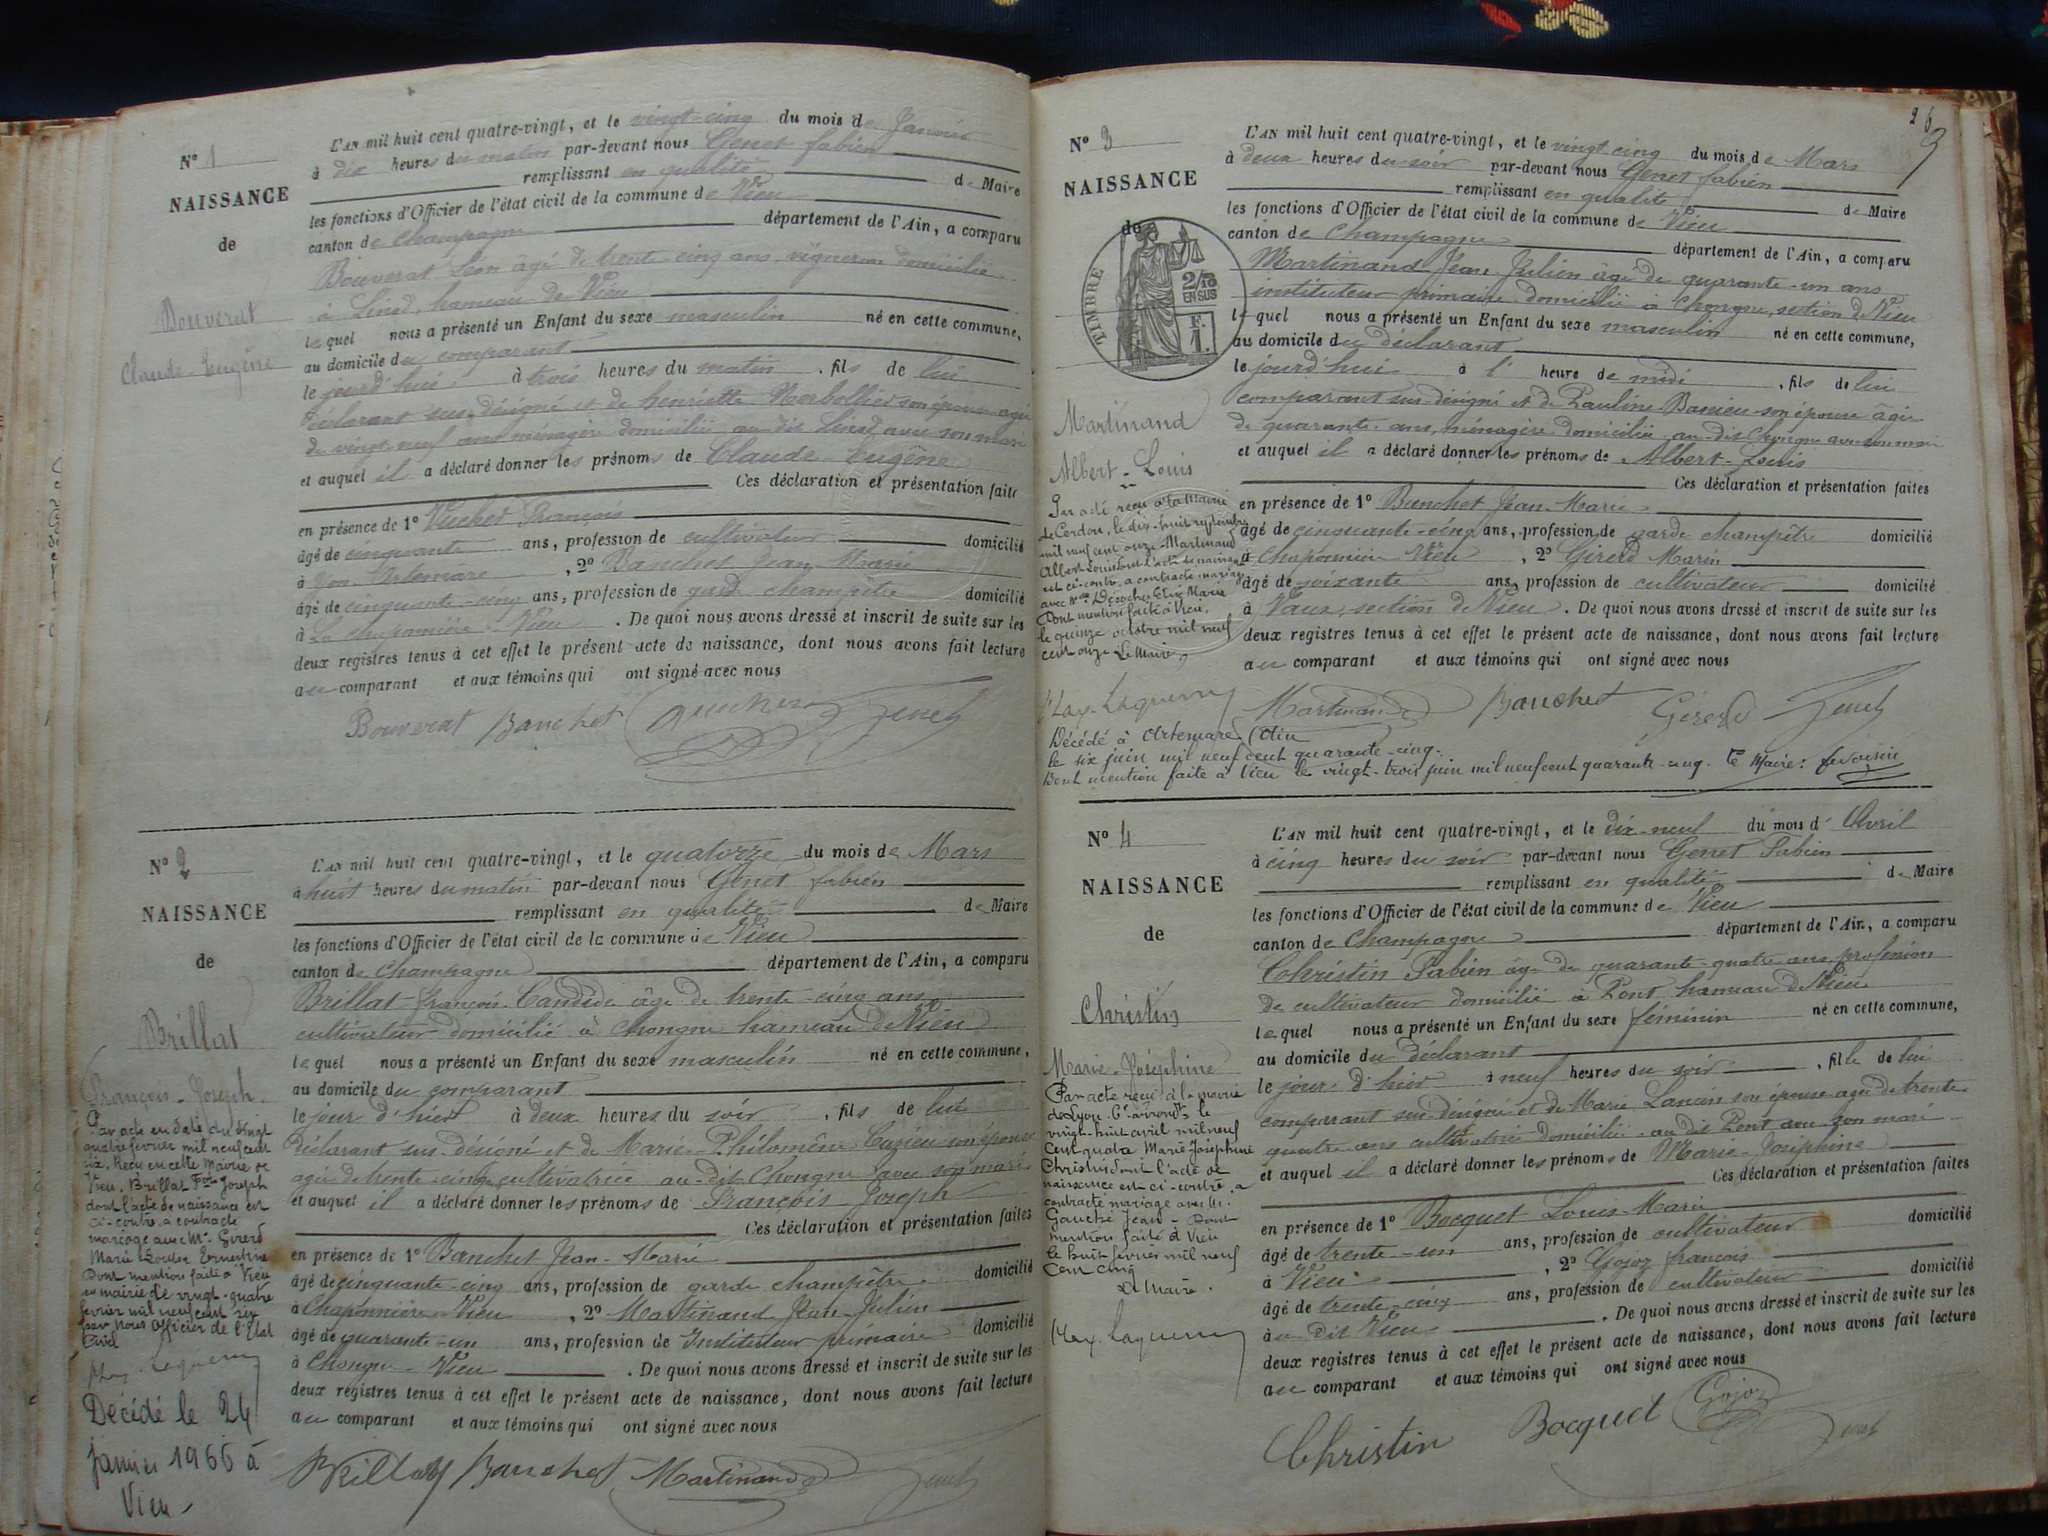 Nº 1
NAISSANCE
de
Bouverat
Claude-Eugène
L'AN mil huit cent quatre-vingt, et le vingt-cinq du mois de Janvier
à dix heures du matin par-devant nous Genet fabien
remplissant en qualité de Maire
les fonctions d'Officier de l'état civil de la commune de Vieu
canton de Champagne département de l'Ain, a comparu
Bouverat Léon âgé de trente cinq ans, vigneron domicilié
à Linod, hameau de Vieu
lequel nous a présenté un Enfant du sexe masculin né en cette commune,
au domicile du comparant
le jourd'hui à trois heures du matin, fils de lui
déclarant sus-désigné et de henriette son épouse agée
de vingt neuf ans ménagère domiciliée au dit Linod avec son mari
et auquel il a déclaré donner les prénoms de Claude Eugène
Ces déclaration et présentation faites
en présence de 1º François
âgé de cinquante ans, profession de cultivateur domicilié
à Artemare, 2º Banchet Jean Marie
âgé de cinquante-cinq ans, profession de garde champêtre domicilié
à La chaponnière Vieu. De quoi nous avons dressé et inscrit de suite sur les
deux registres tenus à cet effet le présent acte de naissance, dont nous avons fait lecture
au comparant et aux témoins qui ont signé avec nous
Bouverat Banchet Genet
Nº 2
NAISSANCE
de
Brillat
François-Joseph.
Par acte en date du vingt
quatre février mil neuf cent
six, reçu en cette Mairie de
Vieu, Brillat Fois Joseph
dont l'acte de naissance est
ci-contre, a contracté
mariage avec Mlle Girerd
Marie Louise Ernestine
Dont mention faite à Vieu
en mairie le vingt-quatre
février mil neuf cent six
par nous Officier de l'Etat
Civil
Décédé le 24
janvier 1966 à
Vieu
L'AN mil huit cent quatre-vingt, et le quatorze du mois de Mars
à huit heures du matin par-devant nous Genet fabien
remplissant en qualité de Maire
les fonctions d'Officier de l'état civil de la commune de Vieu
canton de Champagne département de l'Ain, a comparu
Brillat-François Candide âgé de trente-cinq ans
cultivateur domicilié à Chongne hameau de Vieu
lequel nous a présenté un Enfant du sexe masculin né en cette commune,
au domicile du comparant
le jour d'hier à deux heures du soir, fils de lui
déclarant sus désigné et de Marie-Philomène son épouse
agée de trente-cinq cultivatrice au-dit Chongne avec son mari
et auquel il a déclaré donner les prénoms de François-Joseph
Ces déclaration et présentation faites
en présence de 1º Banchet Jean-Marie
âgé de cinquante-cinq ans, profession de garde champêtre domicilié
à Chaponnière Vieu, 2º Martinand Jean-Julien
âgé de quarante-un ans, profession de Instituteur primaire domicilié
à Chongne-Vieu. De quoi nous avons dressé et inscrit de suite sur les
deux registres tenus à cet effet le présent acte de naissance, dont nous avons fait lecture
au comparant et aux témoins qui ont signé avec nous
Brillat Banchet Martinand Genet
26
Nº 3
NAISSANCE
de
TIMBRE
2/10
EN SUS
F.
1.
Martinand
Albert-Louis
Par acte reçu à la Mairie
de Cerdon, le dix-huit septembre
mil neuf cent onze Martinand
Albert Louis dont l'acte de naissance
est ci-contre, a contracté mariage
avec Marie
Dont mention faite à Vieu,
le quinze octobre mil neuf
cent onze Le Maire,
L'AN mil huit cent quatre-vingt, et le vingt cinq du mois de Mars
à deux heures du soir par-devant nous Genet fabien
remplissant en qualité de Maire
les fonctions d'Officier de l'état civil de la commune de Vieu
canton de Champagne département de l'Ain, a comparu
Martinand Jean Julien âgé de quarante-un ans
instituteur primaire domicilié à Chongne, section de Vieu
lequel nous a présenté un Enfant du sexe masculin né en cette commune,
au domicile du déclarant
le jourd'hui à l' heure de midi, fils de lui
comparant sus-désigné et de Pauline son épouse âgée
de quarante ans, ménagère domiciliée au-dit Chongne avec son mari
et auquel il a déclaré donner les prénoms de Albert-Louis
Ces déclaration et présentation faites
en présence de 1º Banchet Jean-Marie
âgé de cinquante-cinq ans, profession de garde champêtre domicilié
à Chaponnière Vieu, 2º Girerd Marin
âgé de soixante ans, profession de cultivateur domicilié
à Vaux, section de Vieu. De quoi nous avons dressé et inscrit de suite sur les
deux registres tenus à cet effet le présent acte de naissance, dont nous avons fait lecture
au comparant et aux témoins qui ont signé avec nous
Martinand Banchet Girerd Genet
Décédé à Artemare (Ain
le six juin mil neuf cent quarante-cinq.
Dont mention faite à Vieu le vingt-trois juin mil neuf cent quarante-cinq. Le Maire:
Nº 4
NAISSANCE
de
Christin
Marie-Joséphine
Par acte reçu à la mairie
de Lyon 6e arrondt le
vingt-huit avril mil neuf
cent quatre Marie Joséphine
Christin dont l'acte de
naissance est ci-contre, a
contracté mariage avec M.
Jean-Dont
mention faite à Vieu
le huit février mil neuf
cent cinq
Le Maire.
L'AN mil huit cent quatre-vingt, et le dix-neuf du mois d'Avril
à cinq heures du soir par-devant nous Genet Fabien
remplissant en qualité de Maire
les fonctions d'Officier de l'état civil de la commune de Vieu
canton de Champagne département de l'Ain, a comparu
Christin Fabien âgé de quarante-quatre ans, profession
de cultivateur domicilié à Pont hameau de Vieu
lequel nous a présenté un Enfant du sexe féminin né en cette commune,
au domicile du déclarant
le jour d'hier à neuf heures du soir, fille de lui
comparant sus-désigné et de Marie son épouse agée de trente
quatre ans cultivatrice domiciliée au dit Pont avec son mari
et auquel il a déclaré donner les prénoms de Marie-Joséphine
Ces déclaration et présentation faites
en présence de 1º Bocquet Louis-Marie
âgé de trente-un ans, profession de cultivateur domicilié
à Vieu, 2º Gojoz françois
âgé de trente-cinq ans, profession de cultivateur domicilié
à au dit Vieu. De quoi nous avons dressé et inscrit de suite sur les
deux registres tenus à cet effet le présent acte de naissance, dont nous avons fait lecture
au comparant et aux témoins qui ont signé avec nous
Christin Bocquet Gojoz Genet